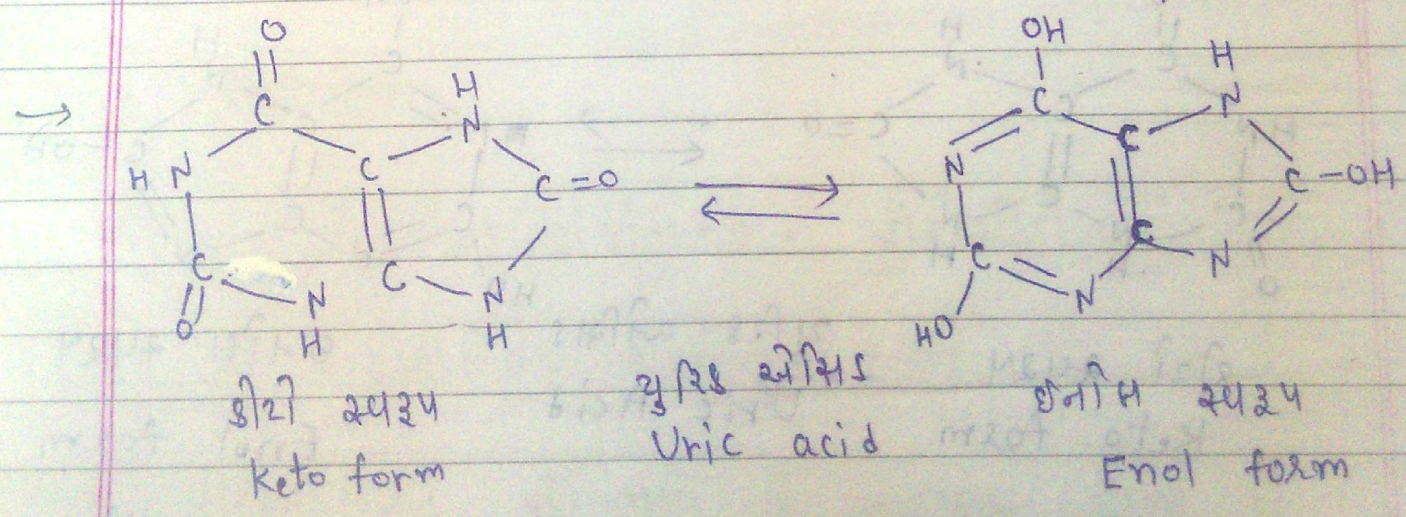 →
O
||
C
H N
H
N
C
C=O
C
O
N
H
C
N
H
⇌
OH
C
N
C
H
N
C-OH
C
HO
N
C
N
કીટો સ્વરૂપ
Keto form
યુરિક એસિડ
Uric acid
ઈનોલ સ્વરૂપ
Enol form